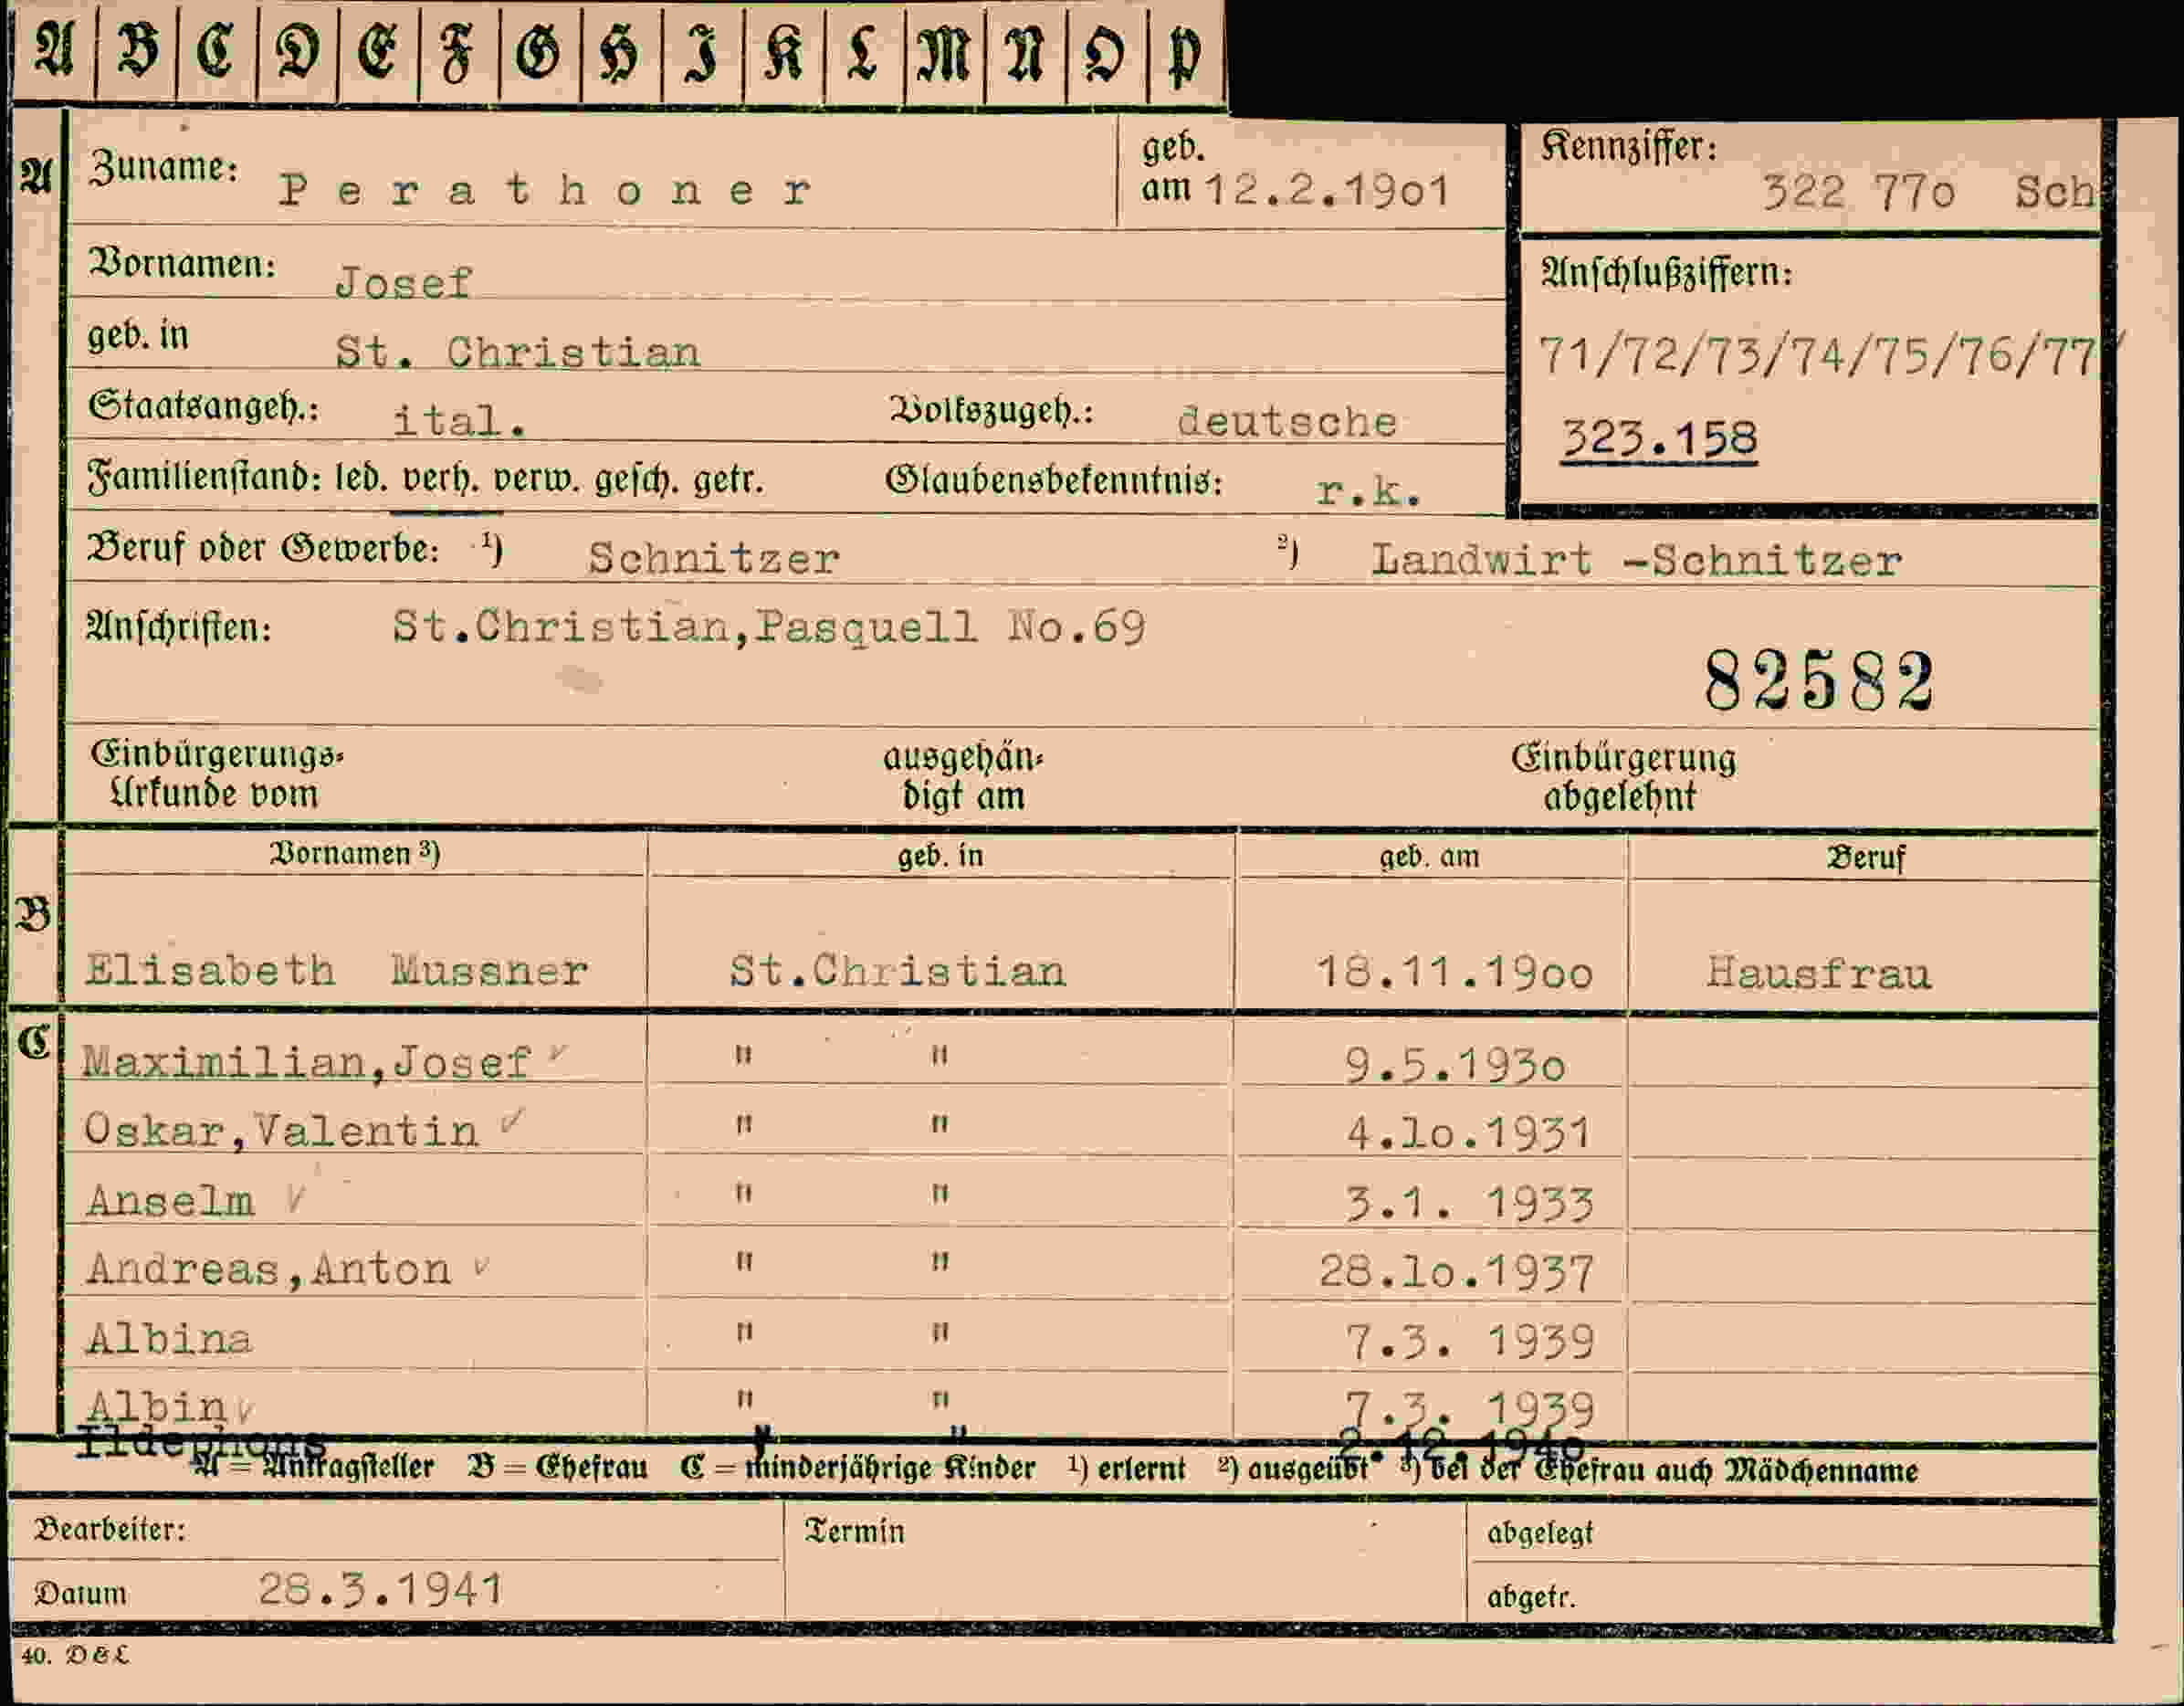 A B C D E F G H I K L M N O P
A Zuname: Perathoner geb. am 12.2.19o1 Kennziffer: 322 77o Sch
Vornamen: Josef Anschlußziffern:
geb. in St. Christian 71/72/73/74/75/76/77/
Staatsangeh.: ital. Volkszugeh.: deutsche 323.158
Familienstand: led. verh. verw. gesch. getr. Glaubensbekenntnis: r.k.
Beruf oder Gewerbe: 1) Schnitzer 2) Landwirt -Schnitzer
Anschriften: St.Christian,Pasquell No.69
82582
Einbürgerungs- ausgehän- Einbürgerung
Urkunde vom digt am abgelehnt
Vornamen 3) geb. in geb. am Beruf
B
Elisabeth Mussner St.Christian 18.11.19oo Hausfrau
C Maximilian,Josef " " 9.5.193o
Oskar,Valentin " " 4.lo.1931
Anselm " " 3.1. 1933
Andreas,Anton " " 28.lo.1937
Albina " " 7.3. 1939
Albin " " 7.3. 1939
Ildephons " " 2.12.194o
A = Antragsteller B = Ehefrau C = minderjährige Kinder 1) erlernt 2) ausgeübt 3) bei der Ehefrau auch Mädchenname
Bearbeiter: Termin abgelegt
Datum 28.3.1941 abgetr.
40. D&L